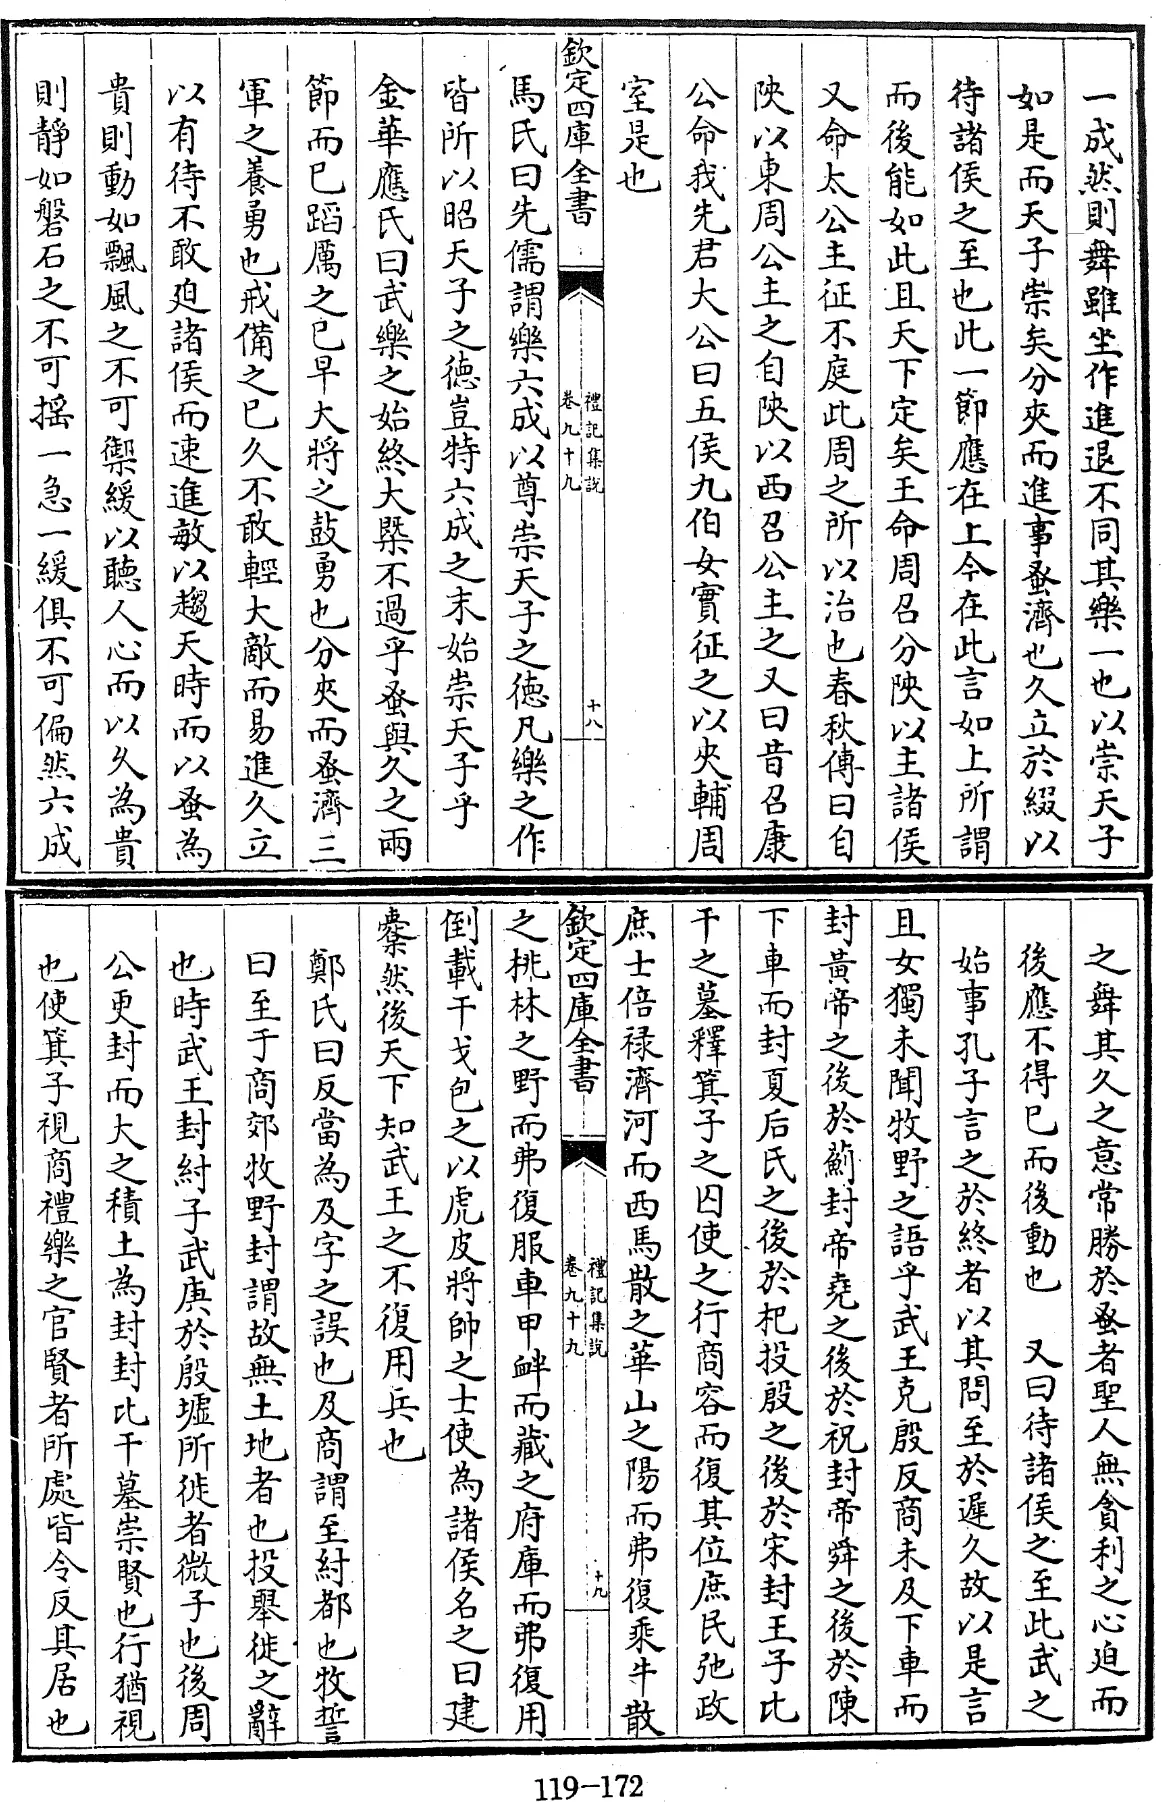 一成然則舞雖坐作進退不同其樂一也以崇天子
如是而天子崇矣分夾而進事蚤濟也久立於綴以
待諸侯之至也此一節應在上今在此言如上所謂
而後能如此且天下定矣王命周召分陜以主諸侯
又命太公主征不庭此周之所以治也春秋傳曰自
陜以東周公主之自陜以西召公主之又曰昔召康
公命我先君大公曰五侯九伯女實征之以夾輔周
室是也
欽定四庫全書
禮記集説
卷九十九
十八
馬氏曰先儒謂樂六成以尊崇天子之徳凡樂之作
皆所以昭天子之徳豈特六成之末始崇天子乎
金華應氏曰武樂之始終大槩不過乎蚤與久之兩
節而已蹈厲之已早大將之鼓勇也分夾而蚤濟三
軍之養勇也戒備之已久不敢輕大敵而易進久立
以有待不敢廹諸侯而速進敏以趨天時而以蚤為
貴則動如飄風之不可禦緩以聽人心而以久為貴
則靜如磐石之不可揺一急一緩俱不可偏然六成
之舞其久之意常勝於蚤者聖人無貪利之心廹而
後應不得已而後動也　又曰待諸侯之至此武之
始事孔子言之於終者以其問至於遲久故以是言
且女獨未聞牧野之語乎武王克殷反商未及下車而
封黃帝之後於薊封帝堯之後於祝封帝舜之後於陳
下車而封夏后氏之後於杞投殷之後於宋封王子比
干之墓釋箕子之囚使之行商容而復其位庶民弛政
庶士倍禄濟河而西馬散之華山之陽而弗復乘牛散
欽定四庫全書
禮記集説
卷九十九
十九
之桃林之野而弗復服車甲衅而藏之府庫而弗復用
倒載干戈包之以虎皮將帥之士使為諸侯名之曰建
櫜然後天下知武王之不復用兵也
鄭氏曰反當為及字之誤也及商謂至紂都也牧誓
曰至于商郊牧野封謂故無土地者也投舉徙之辭
也時武王封紂子武庚於殷墟所徙者微子也後周
公更封而大之積土為封封比干墓崇賢也行猶視
也使箕子視商禮樂之官賢者所處皆令反其居也
119-172